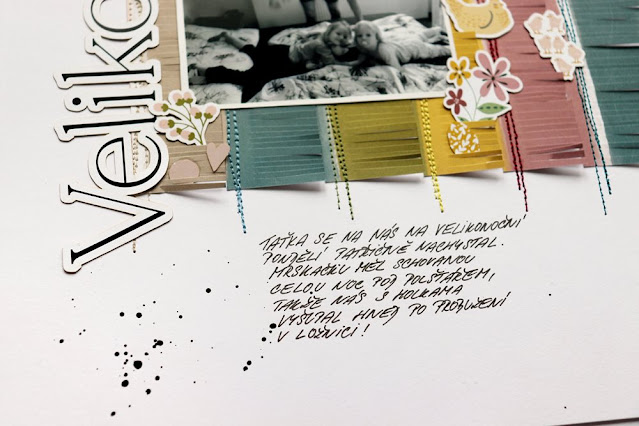 Veliko
TAŤKA SE NA NÁS NA VELIKONOČNÍ
PONDĚLÍ PATŘIČNĚ NACHYSTAL.
MRSKAČKU MĚL SCHOVANOU
CELOU NOC POD POLŠTÁŘEM,
TAKŽE NÁS S HOLKAMA
VYŠUPAL HNED PO PROBUZENÍ
V LOŽNICI!